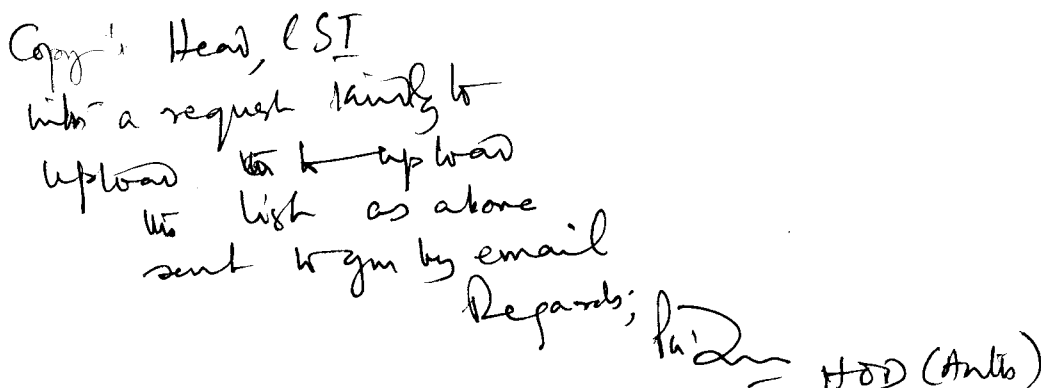 Copy: Head, CSI
with a request kindly to
upload to upload
the list as above
sent to you by email
Regards;
HOD (Anlts)